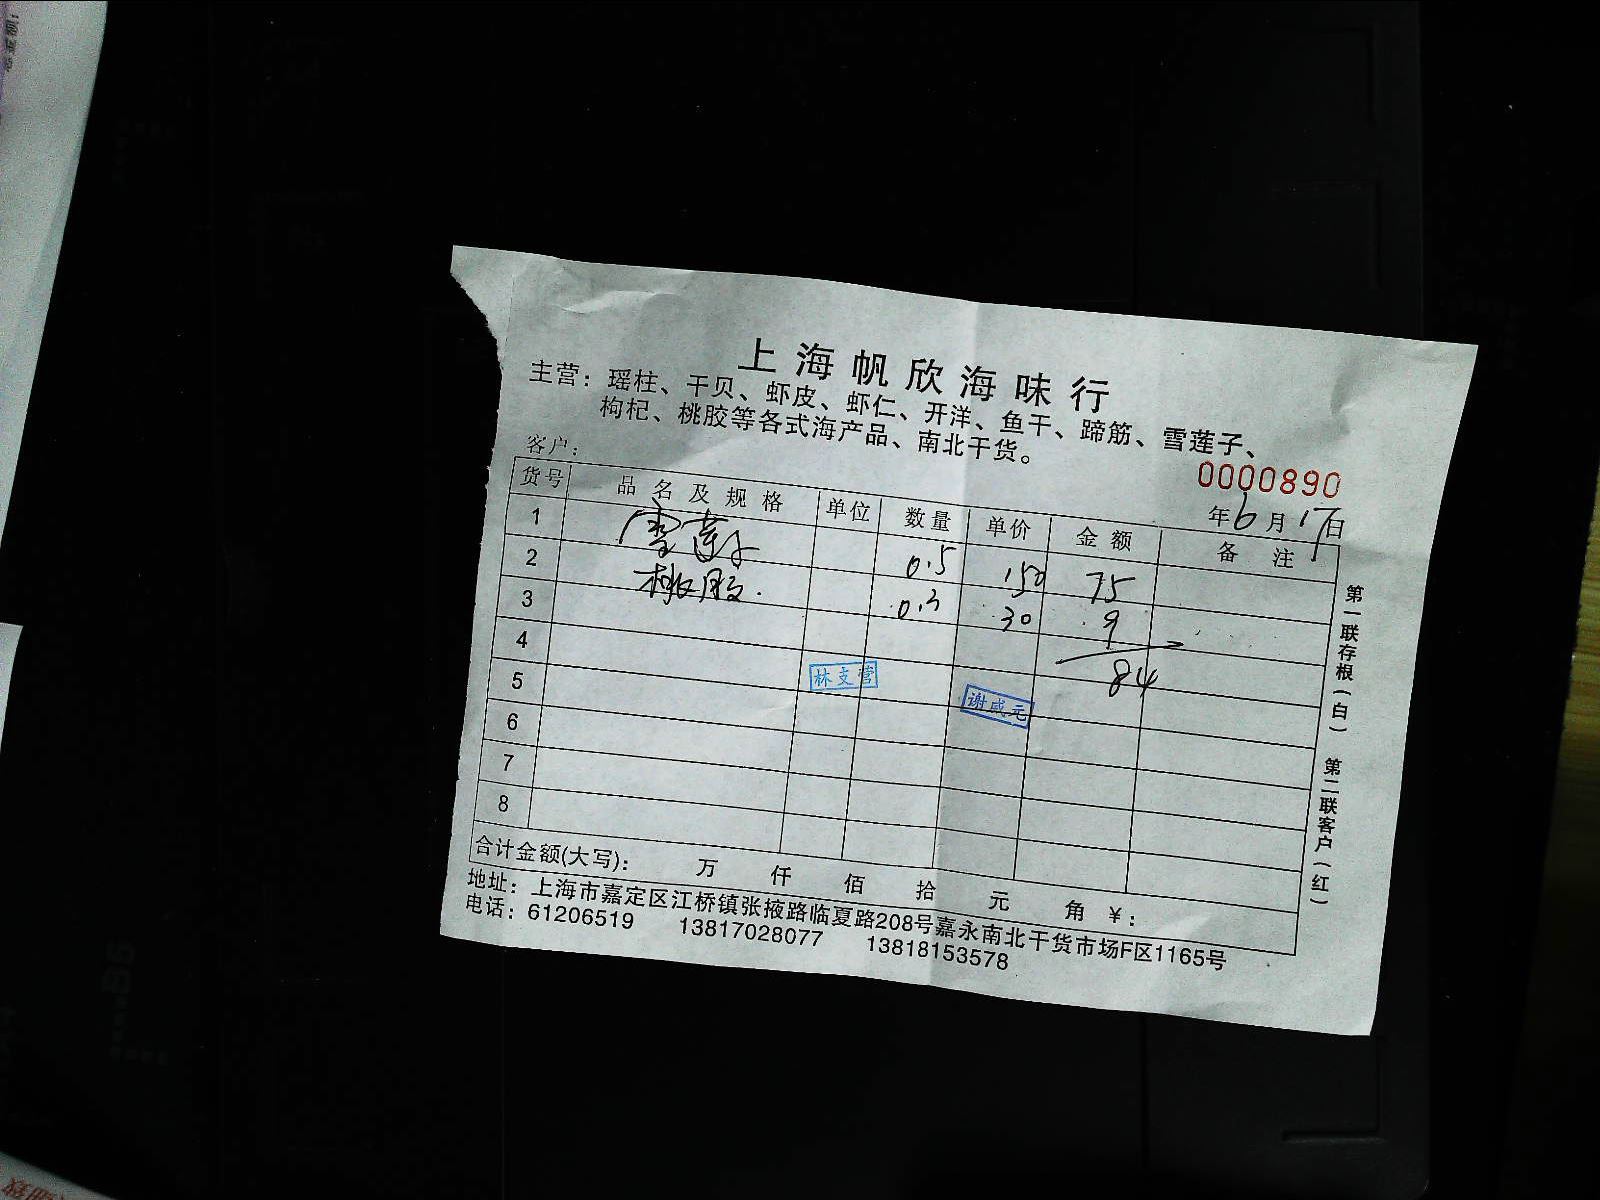 上海帆欣海味行
主营：瑶柱、干贝、虾皮、虾仁、开洋、鱼干、蹄筋、雪莲子、
枸杞、桃胶等各式海产品、南北干货。
0000890
客户： 年6月17日
货号 品名及规格 单位 数量 单价 金额 备注
1 雪莲子 0.5 150 75
2 桃胶. 0.3 30 9
3 84
4
5 林支营 谢咸元
6
7
8
合计金额(大写)： 万 仟 佰 拾 元 角 ￥：
地址：上海市嘉定区江桥镇张掖路临夏路208号嘉永南北干货市场F区1165号
电话：61206519 13817028077 13818153578
第一联存根(白) 第二联客户(红)